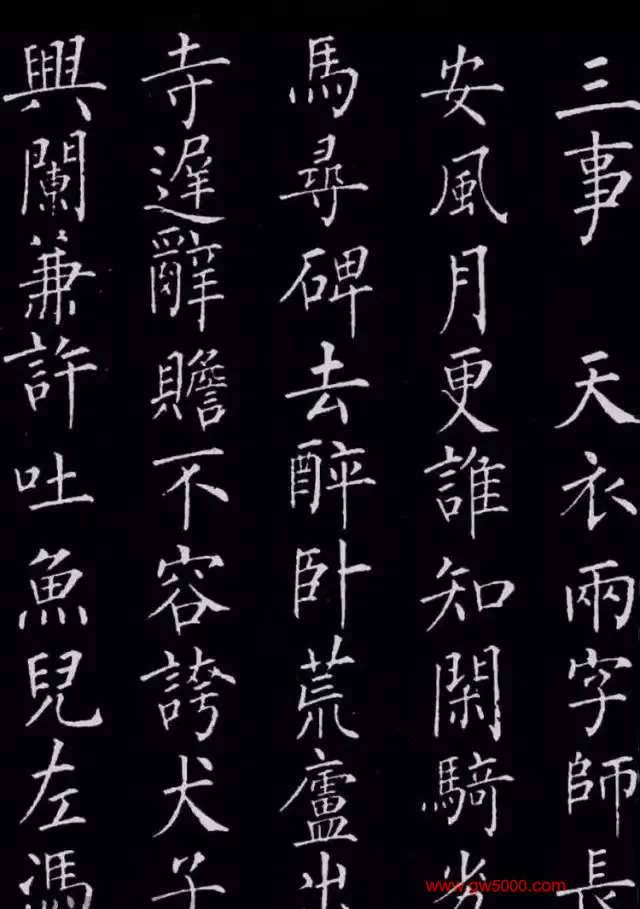 三事　天衣兩字師長
安風月更誰知閑騎劣
馬尋碑去醉卧荒廬出
寺遲辭贍不容誇犬子
興闌兼許吐魚兒左馮
www.gw5000.com